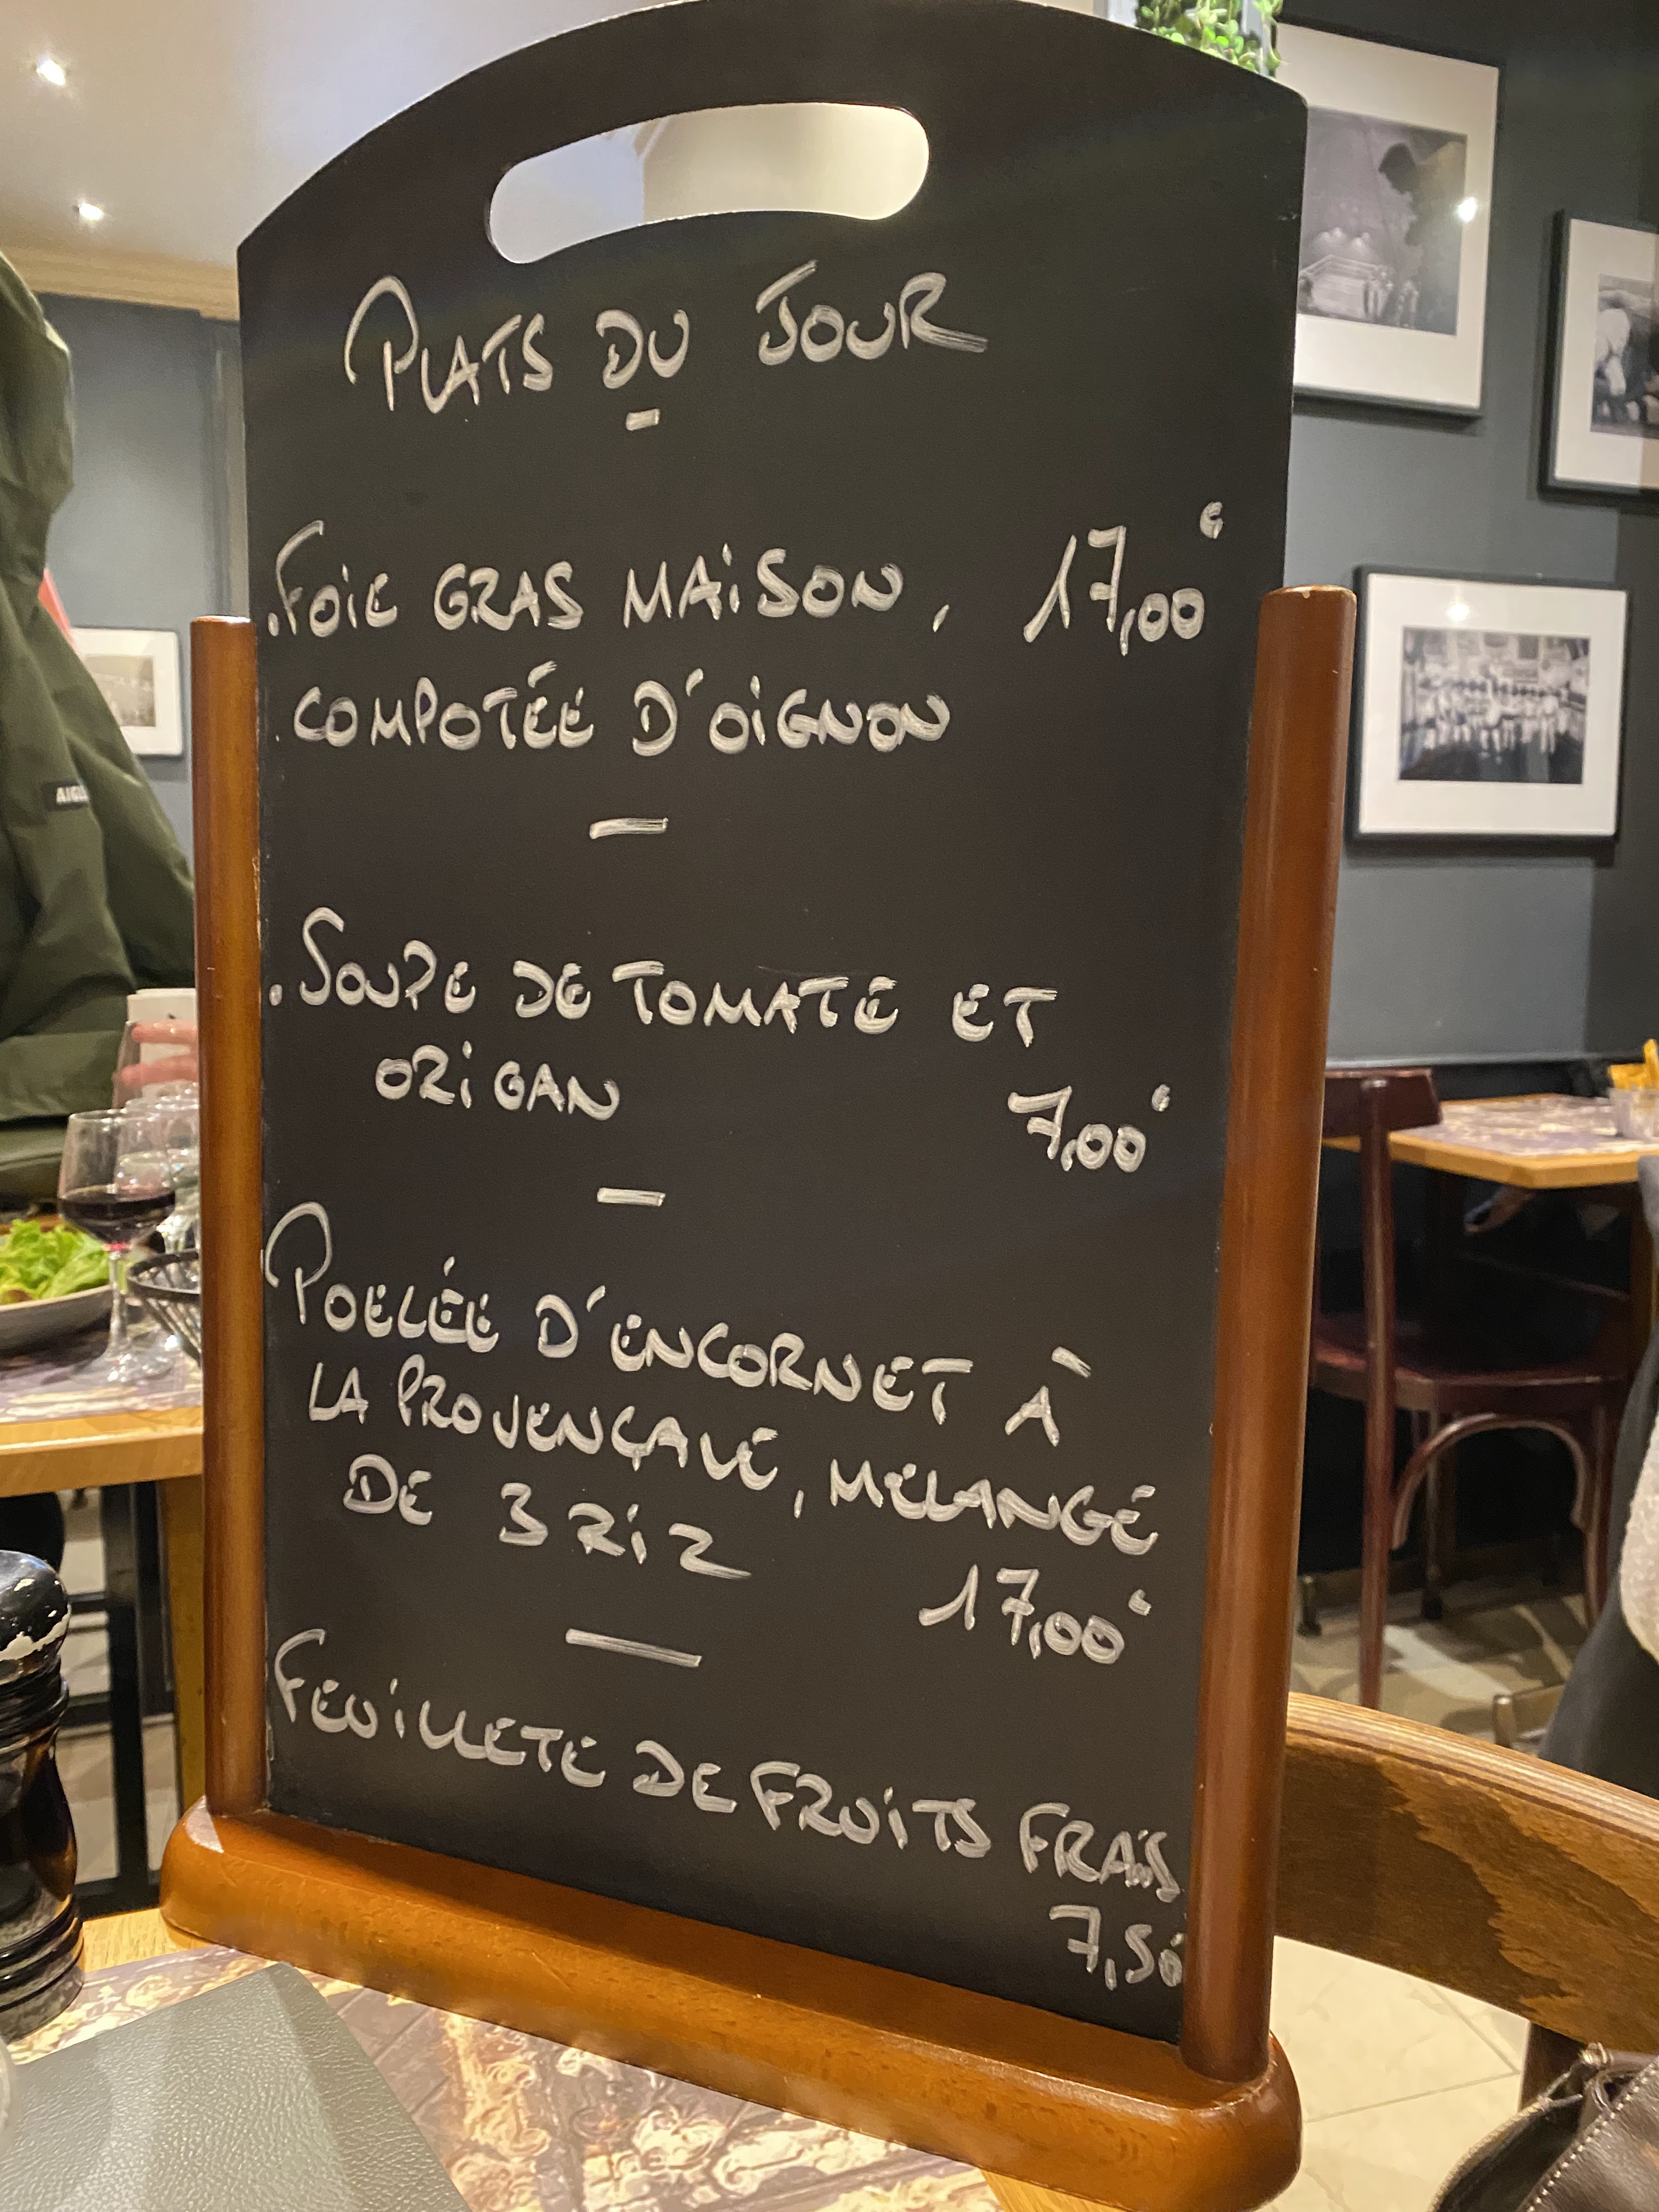 PLATS DU JOUR
.FOIE GRAS MAISON, 17,00€
COMPOTÉE D'OIGNON
.SOUPE DE TOMATE ET
ORIGAN 7,00€
POELÉE D'ENCORNET À
LA PROVENÇALE, MELANGE
DE 3 RIZ
17,00€
FEUILLETE DE FRUITS FRAIS
7,50